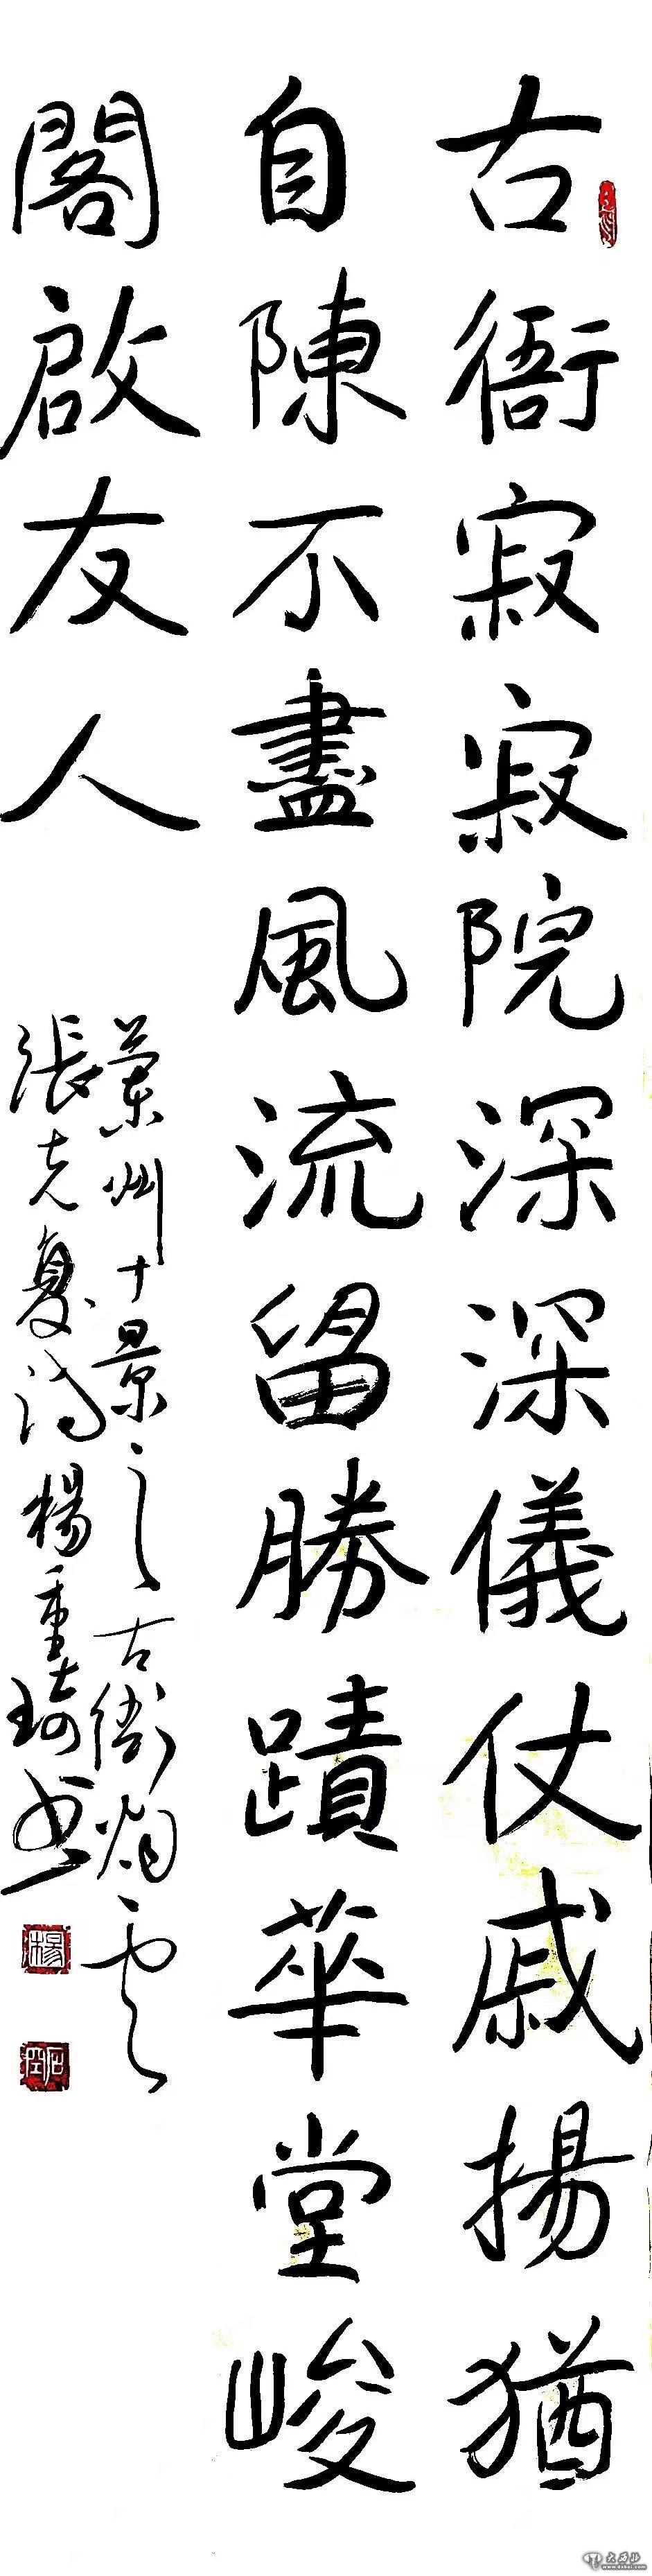 古衙寂寂院深深儀仗戚揚猶
自陳不盡風流留勝蹟華堂峻
閣啟友人
蘭州十景之古衙烟雲
張克復詩楊重琦书
楊
大西北
www.dxbei.com